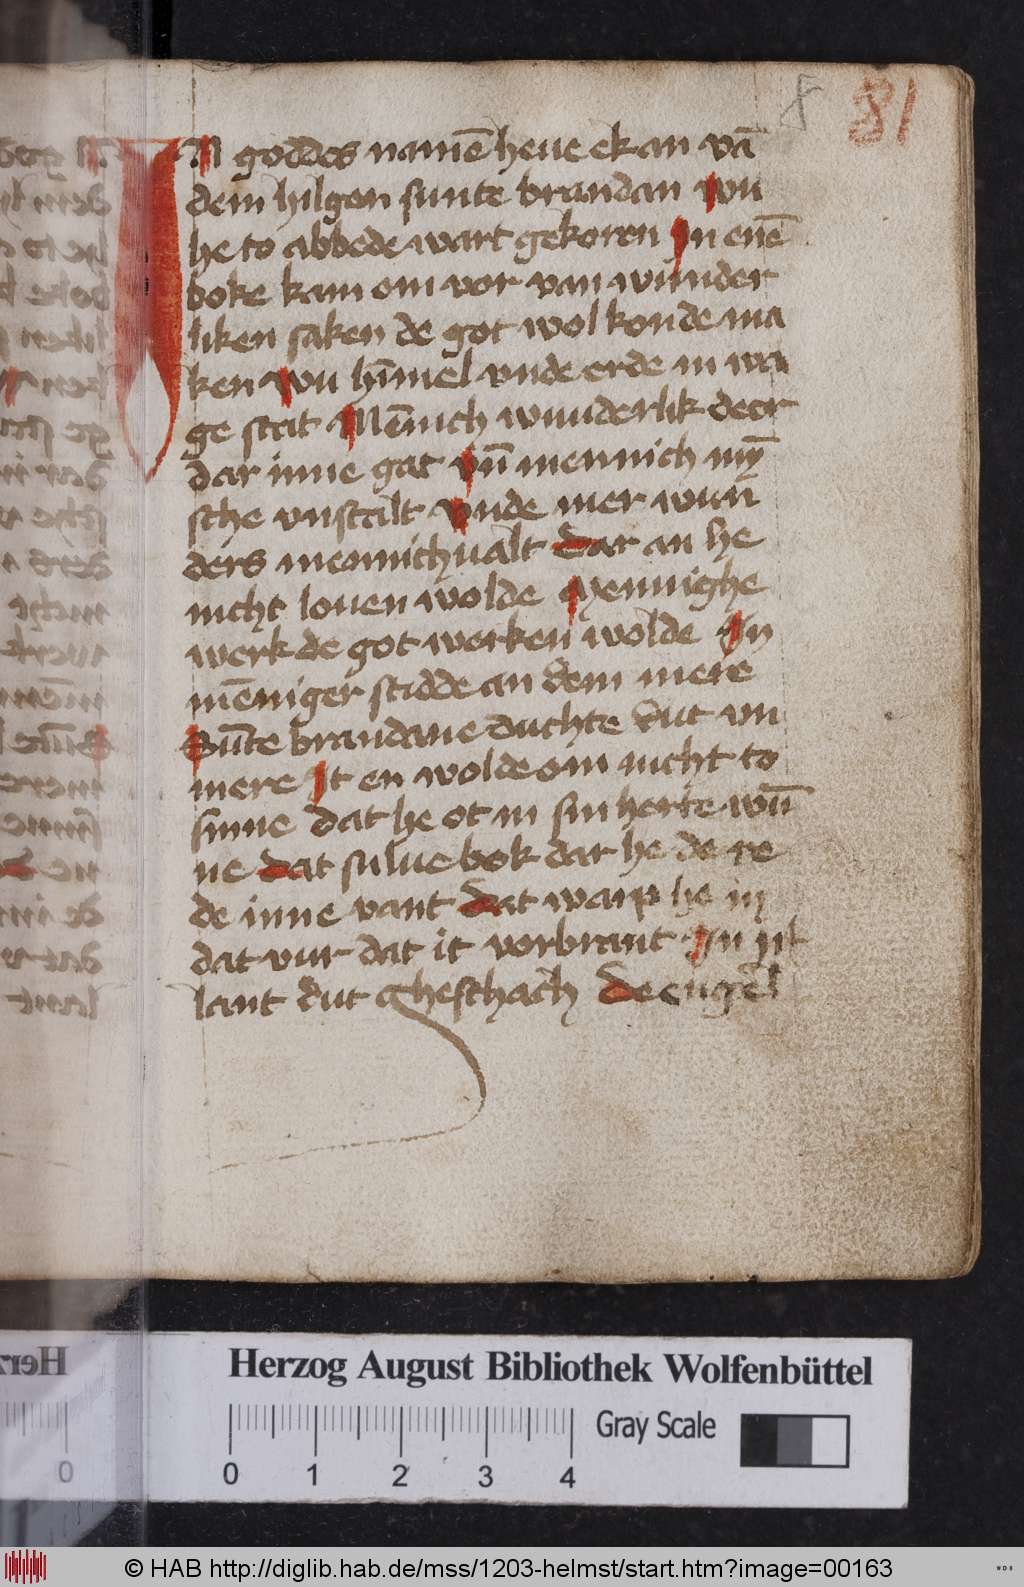 8 81
IN goddes namē heue ek an vā
dem hilgen sunte brandan wu
he to abbede wart gekoren In enē
boke kam om vor van wunder
liken saken de got wol konde ma
ken wu hīmel vnde erde in wa
ge stat Mēnich wunderlik deer
dar inne gat vn̄ mennich mȳ
sche vnstalt vnde mer wun
ders mennichualt Dar an he
nicht louen wolde Mennighe
werk de got werken wolde In
mēniger stidde an dem mere
Sūte brandane duchte dut vn
mere It en wolde om nicht to
sinne dat he ot in sin herte wū
ne dat sulue bok dar he de re
de inne vant dat warp he in
dat vur dat it vorbrant In
lant dut gheschach De engel
Herzog August Bibliothek Wolfenbüttel
Gray Scale
0 1 2 3 4
© HAB http://diglib.hab.de/mss/1203-helmst/start.htm?image=00163